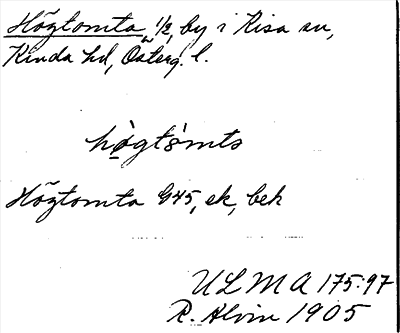 Högtomta, 1/2, by i Kisa sn,
Kinda hd, Österg. l.
hògtômts
Högtomta G45, ek, bek
ULMA 175:97
R. Alvin 1905